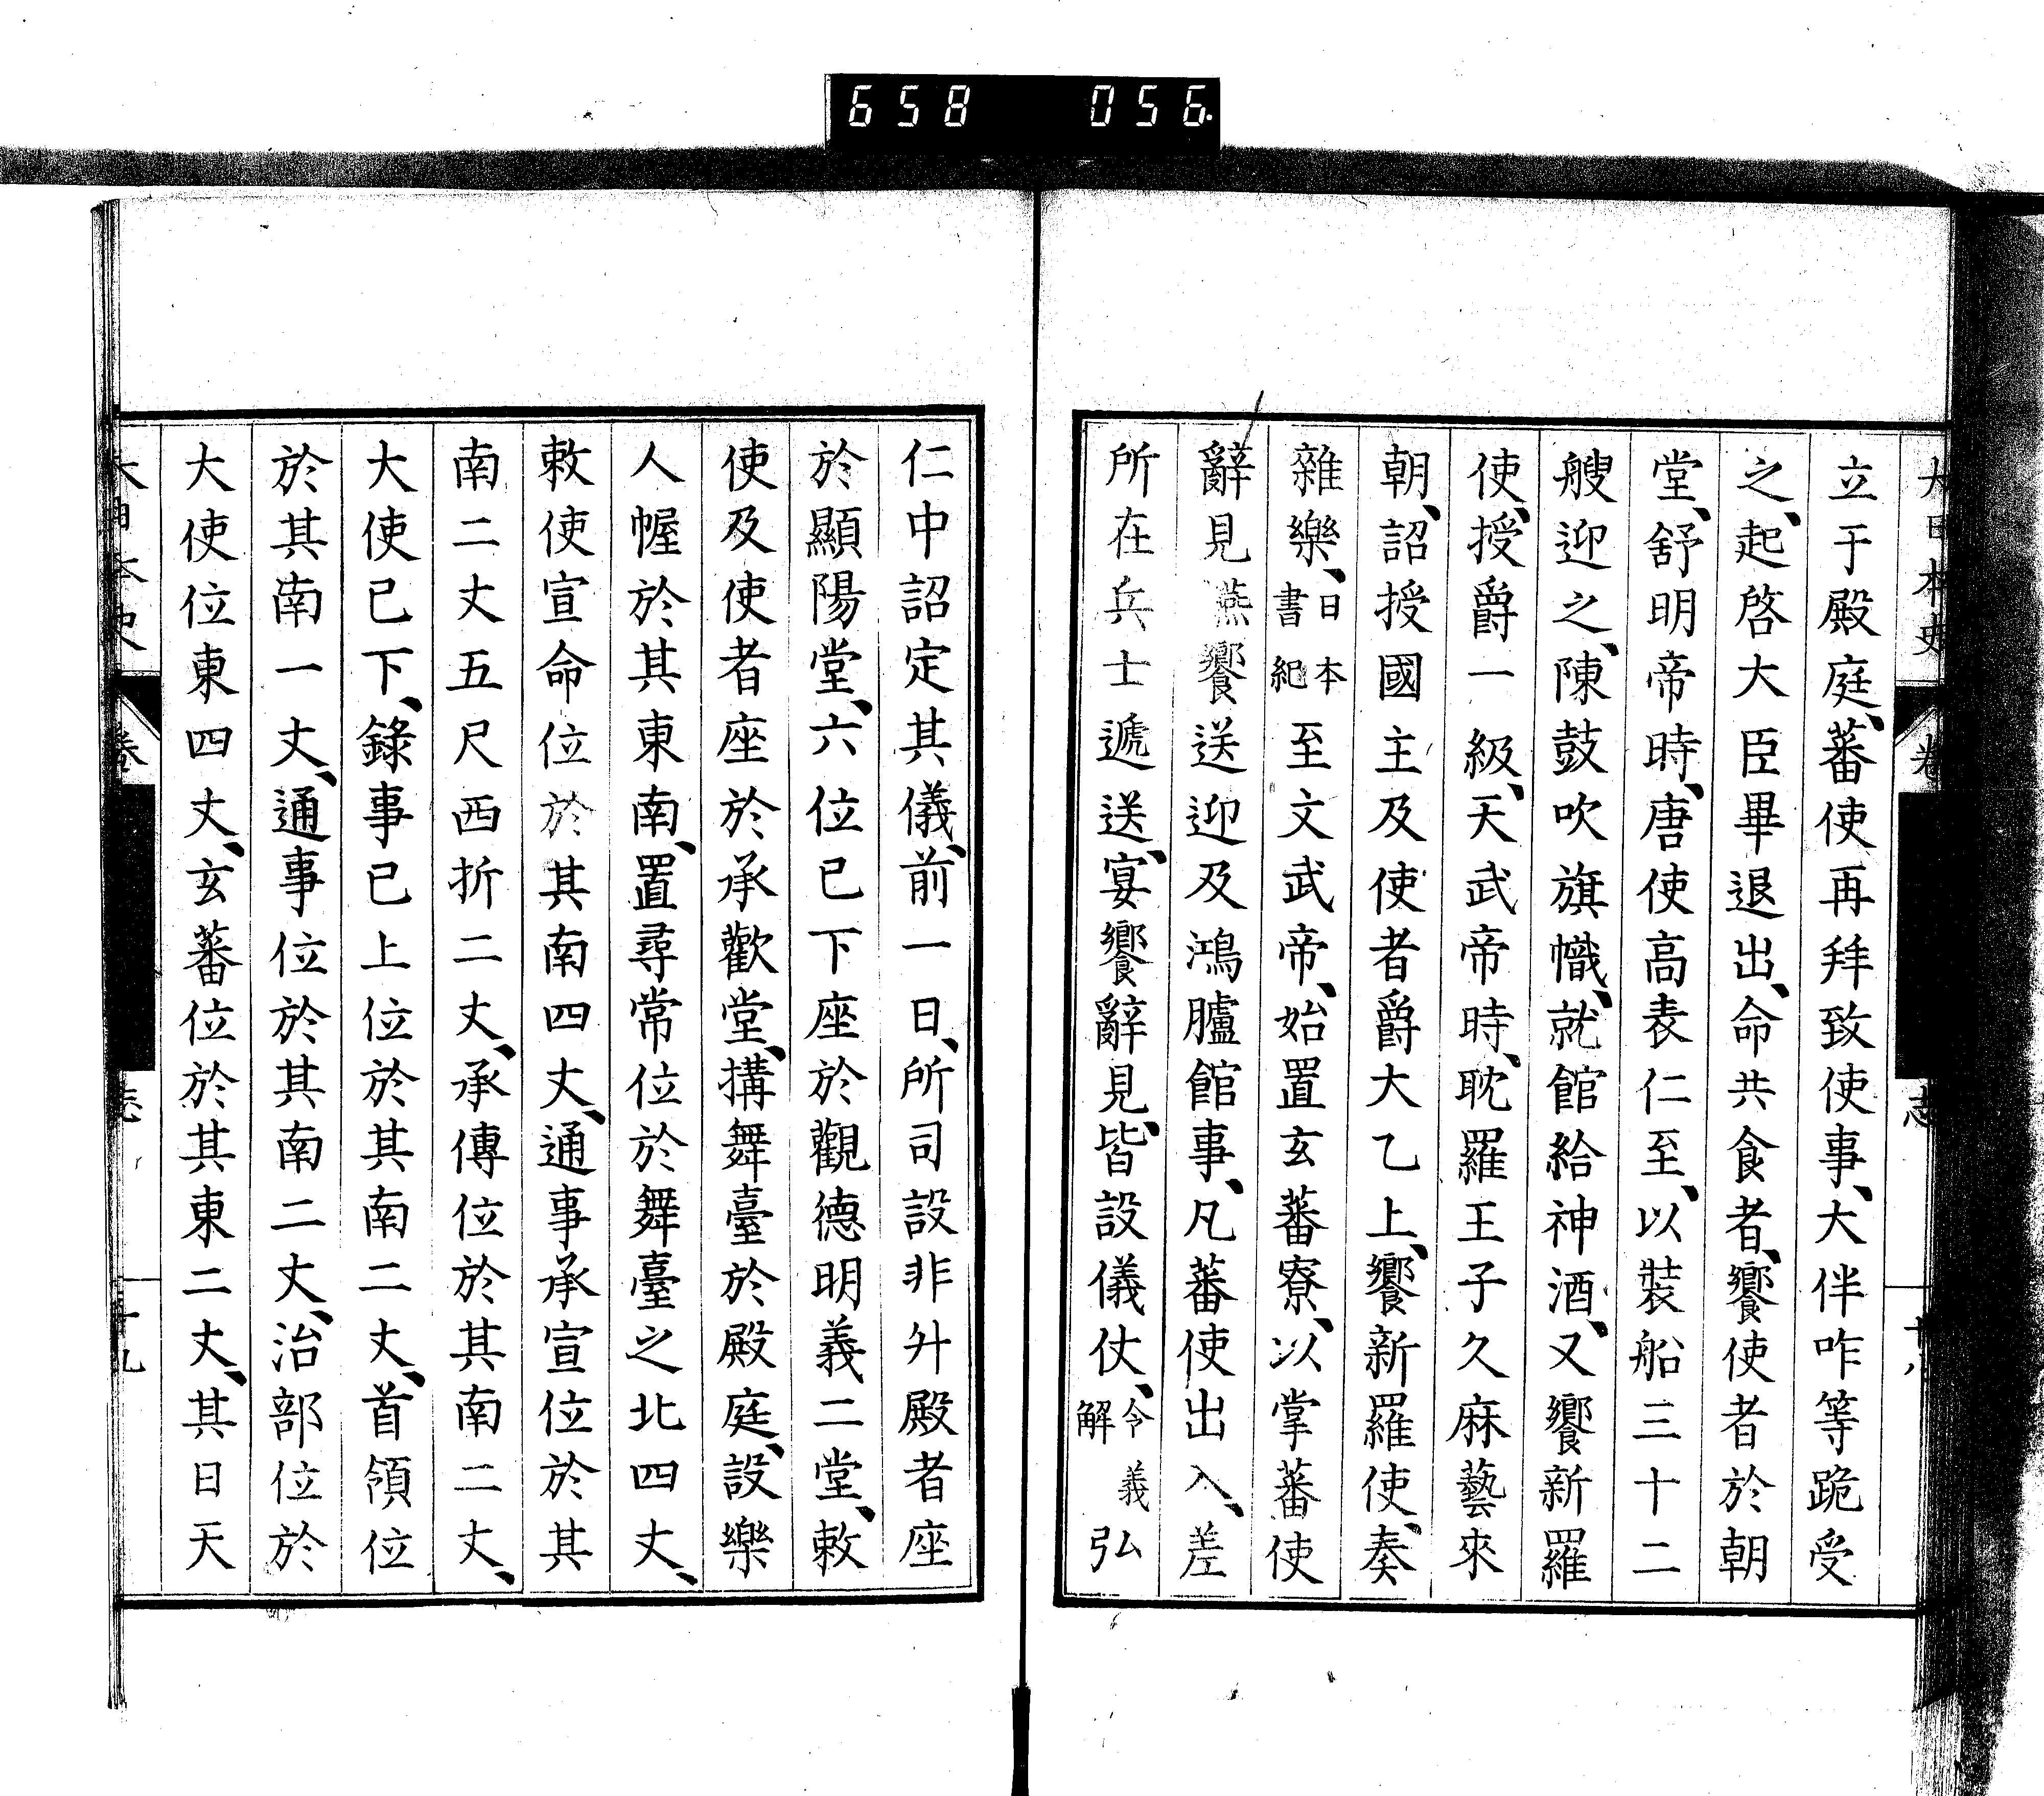 658 056
大日本史 卷 志 十八
立于殿庭、蕃使再拜致使事、大伴咋等跪受
之、起啓大臣畢退出、命共食者、饗使者於朝
堂、舒明帝時、唐使高表仁至、以裝船三十二
艘迎之、陳鼓吹旗幟、就館給神酒、又饗新羅
使、授爵一級、天武帝時、耽羅王子久麻藝來
朝、詔授國主及使者爵大乙上、饗新羅使、奏
雜樂、日本書紀至文武帝、始置玄蕃寮、以掌蕃使
辭見燕饗送迎及鴻臚館事、凡蕃使出入、差
所在兵士遞送、宴饗辭見、皆設儀仗、令義解弘
仁中詔定其儀、前一日、所司設非升殿者座
於顯陽堂、六位已下座於觀德明義二堂、敕
使及使者座於承歡堂、搆舞臺於殿庭、設樂
人幄於其東南、置尋常位於舞臺之北四丈、
敕使宣命位於其南四丈、通事承宣位於其
南二丈五尺西折二丈、承傳位於其南二丈、
大使已下、錄事已上位於其南二丈、首領位
於其南一丈、通事位於其南二丈、治部位於
大使位東四丈、玄蕃位於其東二丈、其日天
大日本史 卷 志 十九